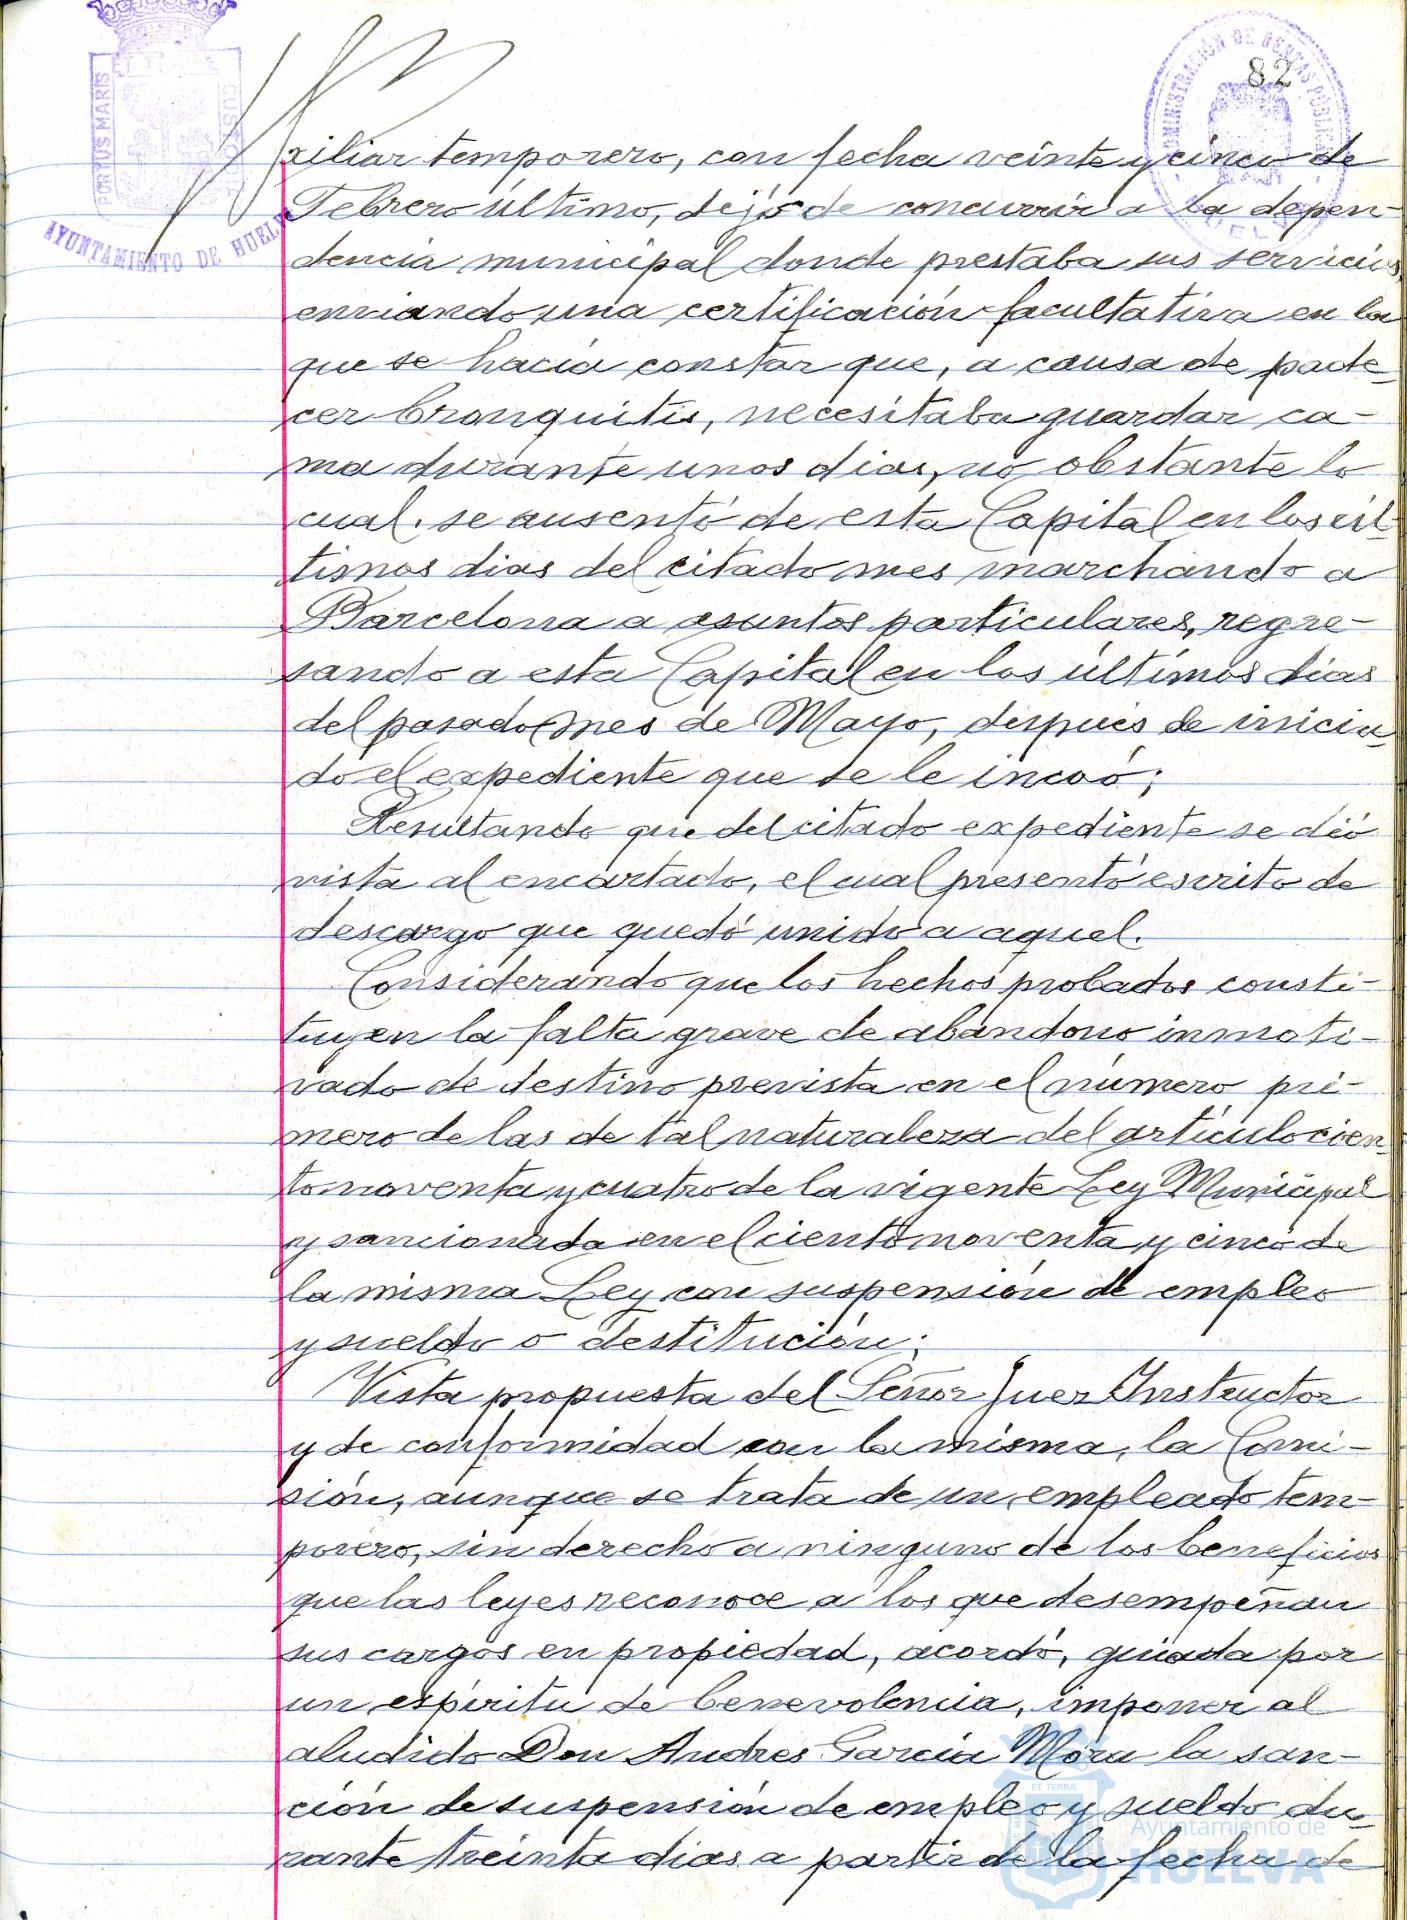 82
PORTUS MARIS
CUSTODIA
AYUNTAMIENTO DE HUELVA
ADMINISTRACIÓN DE RENTAS PÚBLICAS
HUELVA
xiliar temporero, con fecha veinte y cinco de
Febrero último, dejó de concurrir a la depen-
dencia municipal donde prestaba sus servicios,
enviando una certificación facultativa en la
que se hacía constar que, a causa de pade-
cer bronquitis, necesitaba guardar ca-
ma durante unos dias, no obstante lo
cual, se ausentó de esta Capital en los úl-
timos dias del citado mes marchando a
Barcelona a asuntos particulares, regre-
sando a esta Capital en los últimos dias
del pasado mes de Mayo, después de inicia-
do el expediente que se le incoó;
Resultando que del citado expediente se dió
vista al encartado, el cual presentó escrito de
descargo que quedó unido a aquel.
Considerando que los hechos probados consti-
tuyen la falta grave de abandono inmoti-
vado de destino prevista en el número pri-
mero de las de tal naturaleza del artículo cien-
to noventa y cuatro de la vigente Ley Municipal
y sancionada en el ciento noventa y cinco de
la misma Ley con suspensión de empleo
y sueldo o destitución;
Vista propuesta del Señor Juez Instructor
y de conformidad con la misma, la Comi-
sión, aunque se trata de un empleado tem-
porero, sin derecho a ninguno de los beneficios
que las leyes reconoce a los que desempeñan
sus cargos en propiedad, acordó, guiada por
un espíritu de benevolencia, imponer al
aludido Don Andres García Mora la san-
ción de suspensión de empleo y sueldo du-
rante treinta dias a partir de la fecha de
ET TERRÆ
Ayuntamiento de
HUELVA